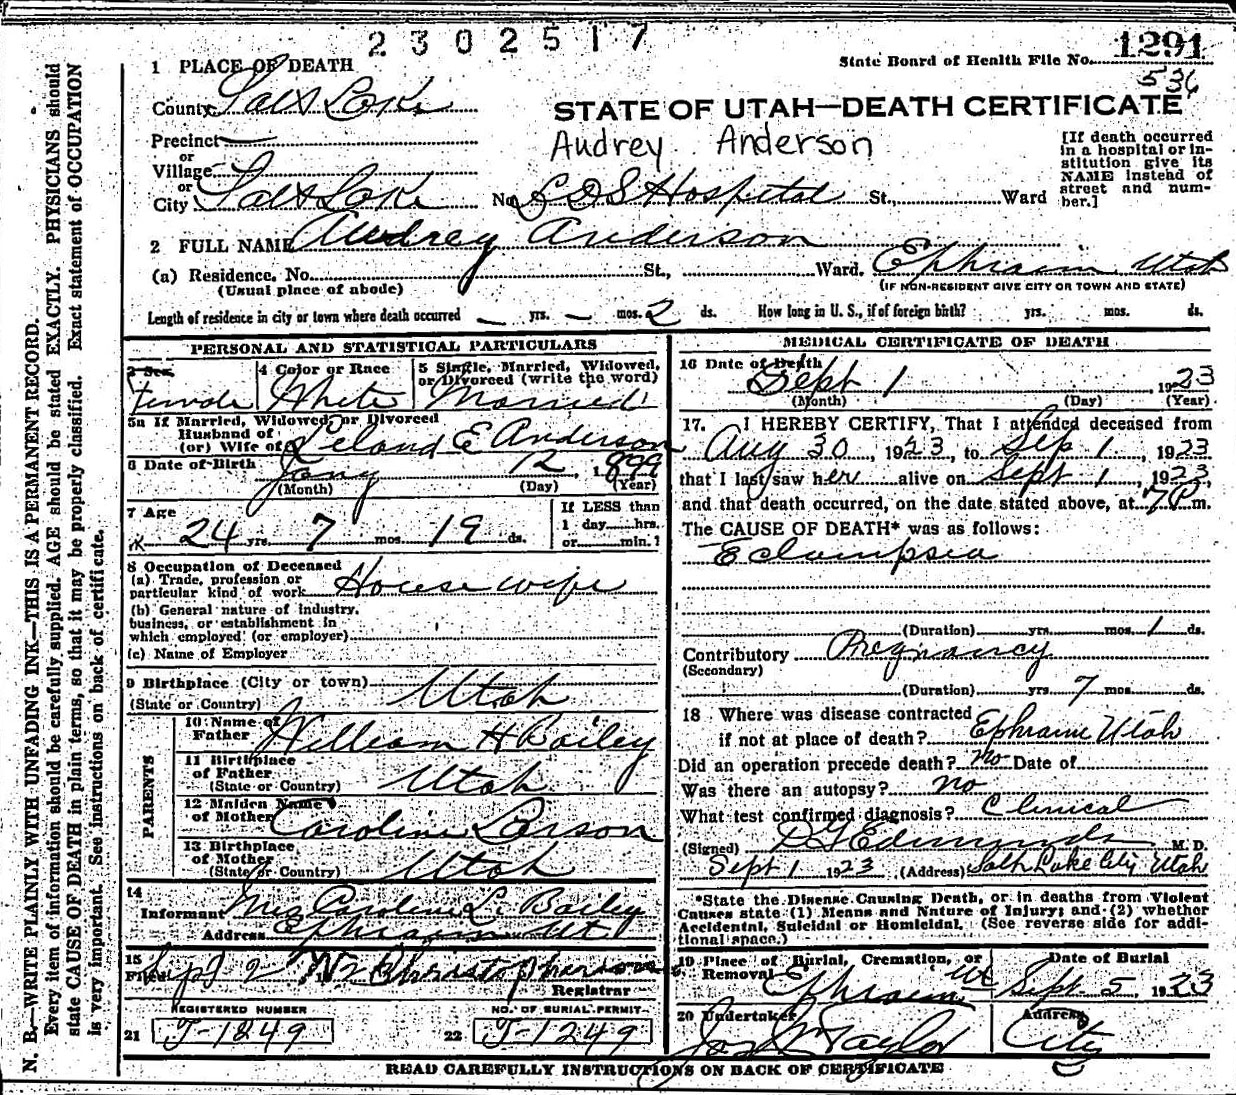 2302517
State Board of Health File No. 1291
536
1 PLACE OF DEATH
County Salt Lake
STATE OF UTAH—DEATH CERTIFICATE
Precinct —
or
Village
or
City Salt Lake
Audrey Anderson
[If death occurred
in a hospital or in-
stitution give its
NAME instead of
street and num-
ber.]
No. LDS Hospital St., Ward
2 FULL NAME Audrey Anderson
(a) Residence, No. St., Ward. Ephraim Utah
(Usual place of abode) (IF NON-RESIDENT GIVE CITY OR TOWN AND STATE)
Length of residence in city or town where death occurred — yrs. — mos. 2 ds. How long in U. S., if of foreign birth? yrs. mos. ds.
PERSONAL AND STATISTICAL PARTICULARS
3 Sex
Female
4 Color or Race
White
5 Single, Married, Widowed,
or Divorced (write the word)
Married
5a If Married, Widowed, or Divorced
Husband of
(or) Wife of Leland E Anderson
6 Date of Birth Jany 12, 1899
(Month) (Day) (Year)
7 Age
24 yrs. 7 mos. 19 ds.
If LESS than
1 day hrs.
or min.?
8 Occupation of Deceased
(a) Trade, profession or
particular kind of work House wife
(b) General nature of industry,
business, or establishment in
which employed (or employer)
(c) Name of Employer
9 Birthplace (City or town)
(State or Country) Utah
PARENTS
10 Name of
Father William H Bailey
11 Birthplace
of Father
(State or Country) Utah
12 Maiden Name
of Mother Caroline Larson
13 Birthplace
of Mother
(State or Country) Utah
14
Informant Mrs Caroline L. Bailey
Address Ephraim Ut
15
Filed Sept 2
Registrar
REGISTERED NUMBER
21 T-1249
NO. OF BURIAL PERMIT
22 T-1249
MEDICAL CERTIFICATE OF DEATH
16 Date of Death
Sept 1, 1923
(Month) (Day) (Year)
17. I HEREBY CERTIFY, That I attended deceased from
Aug 30, 1923, to Sep 1, 1923
that I last saw her alive on Sept 1, 1923,
and that death occurred, on the date stated above, at 7 P. m.
The CAUSE OF DEATH* was as follows:
Eclampsia
(Duration) yrs. mos. 1 ds.
Contributory Pregnancy
(Secondary)
(Duration) yrs 7 mos. ds.
18 Where was disease contracted
if not at place of death? Ephraim Utah
Did an operation precede death? no Date of
Was there an autopsy? no
What test confirmed diagnosis? Clinical
(Signed) D G Edmunds M. D.
Sept 1 1923 (Address) Salt Lake City Utah
*State the Disease Causing Death, or in deaths from Violent
Causes state (1) Means and Nature of Injury; and (2) whether
Accidental, Suicidal or Homicidal. (See reverse side for addi-
tional space.)
19 Place of Burial, Cremation, or
Removal Ephraim Ut
Date of Burial
Sept 5, 1923
20 Undertaker
Jos Wm Taylor
Address
City
READ CAREFULLY INSTRUCTIONS ON BACK OF CERTIFICATE
N. B.—WRITE PLAINLY WITH UNFADING INK—THIS IS A PERMANENT RECORD.
Every item of information should be carefully supplied. AGE should be stated EXACTLY. PHYSICIANS should
state CAUSE OF DEATH in plain terms, so that it may be properly classified. Exact statement of OCCUPATION
is very important. See instructions on back of certificate.